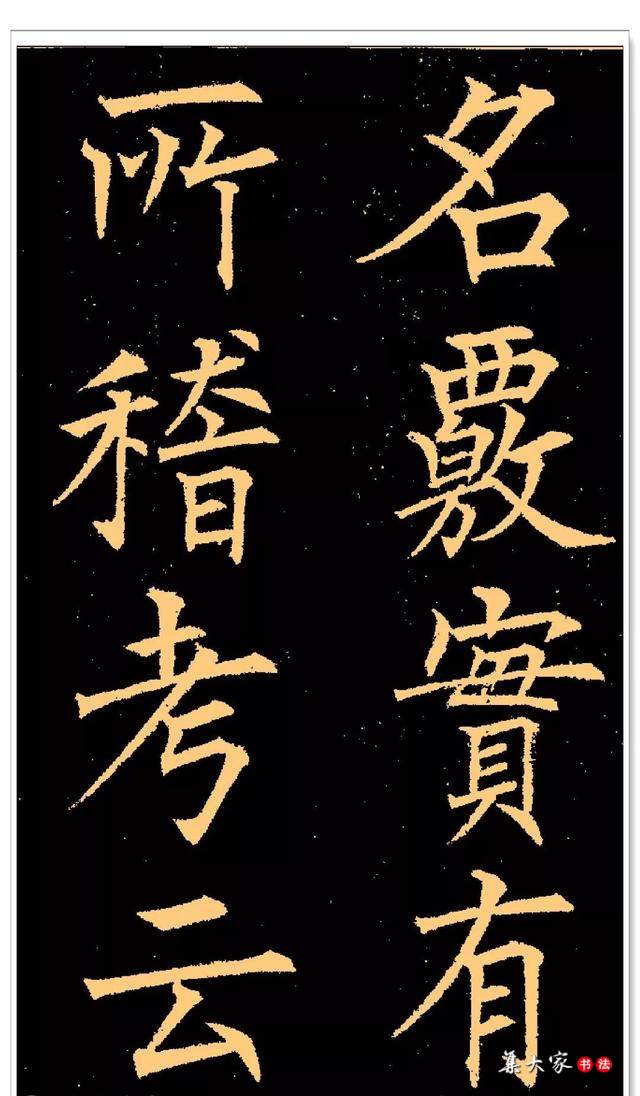 名覈實有
所稽考云
集大家书法